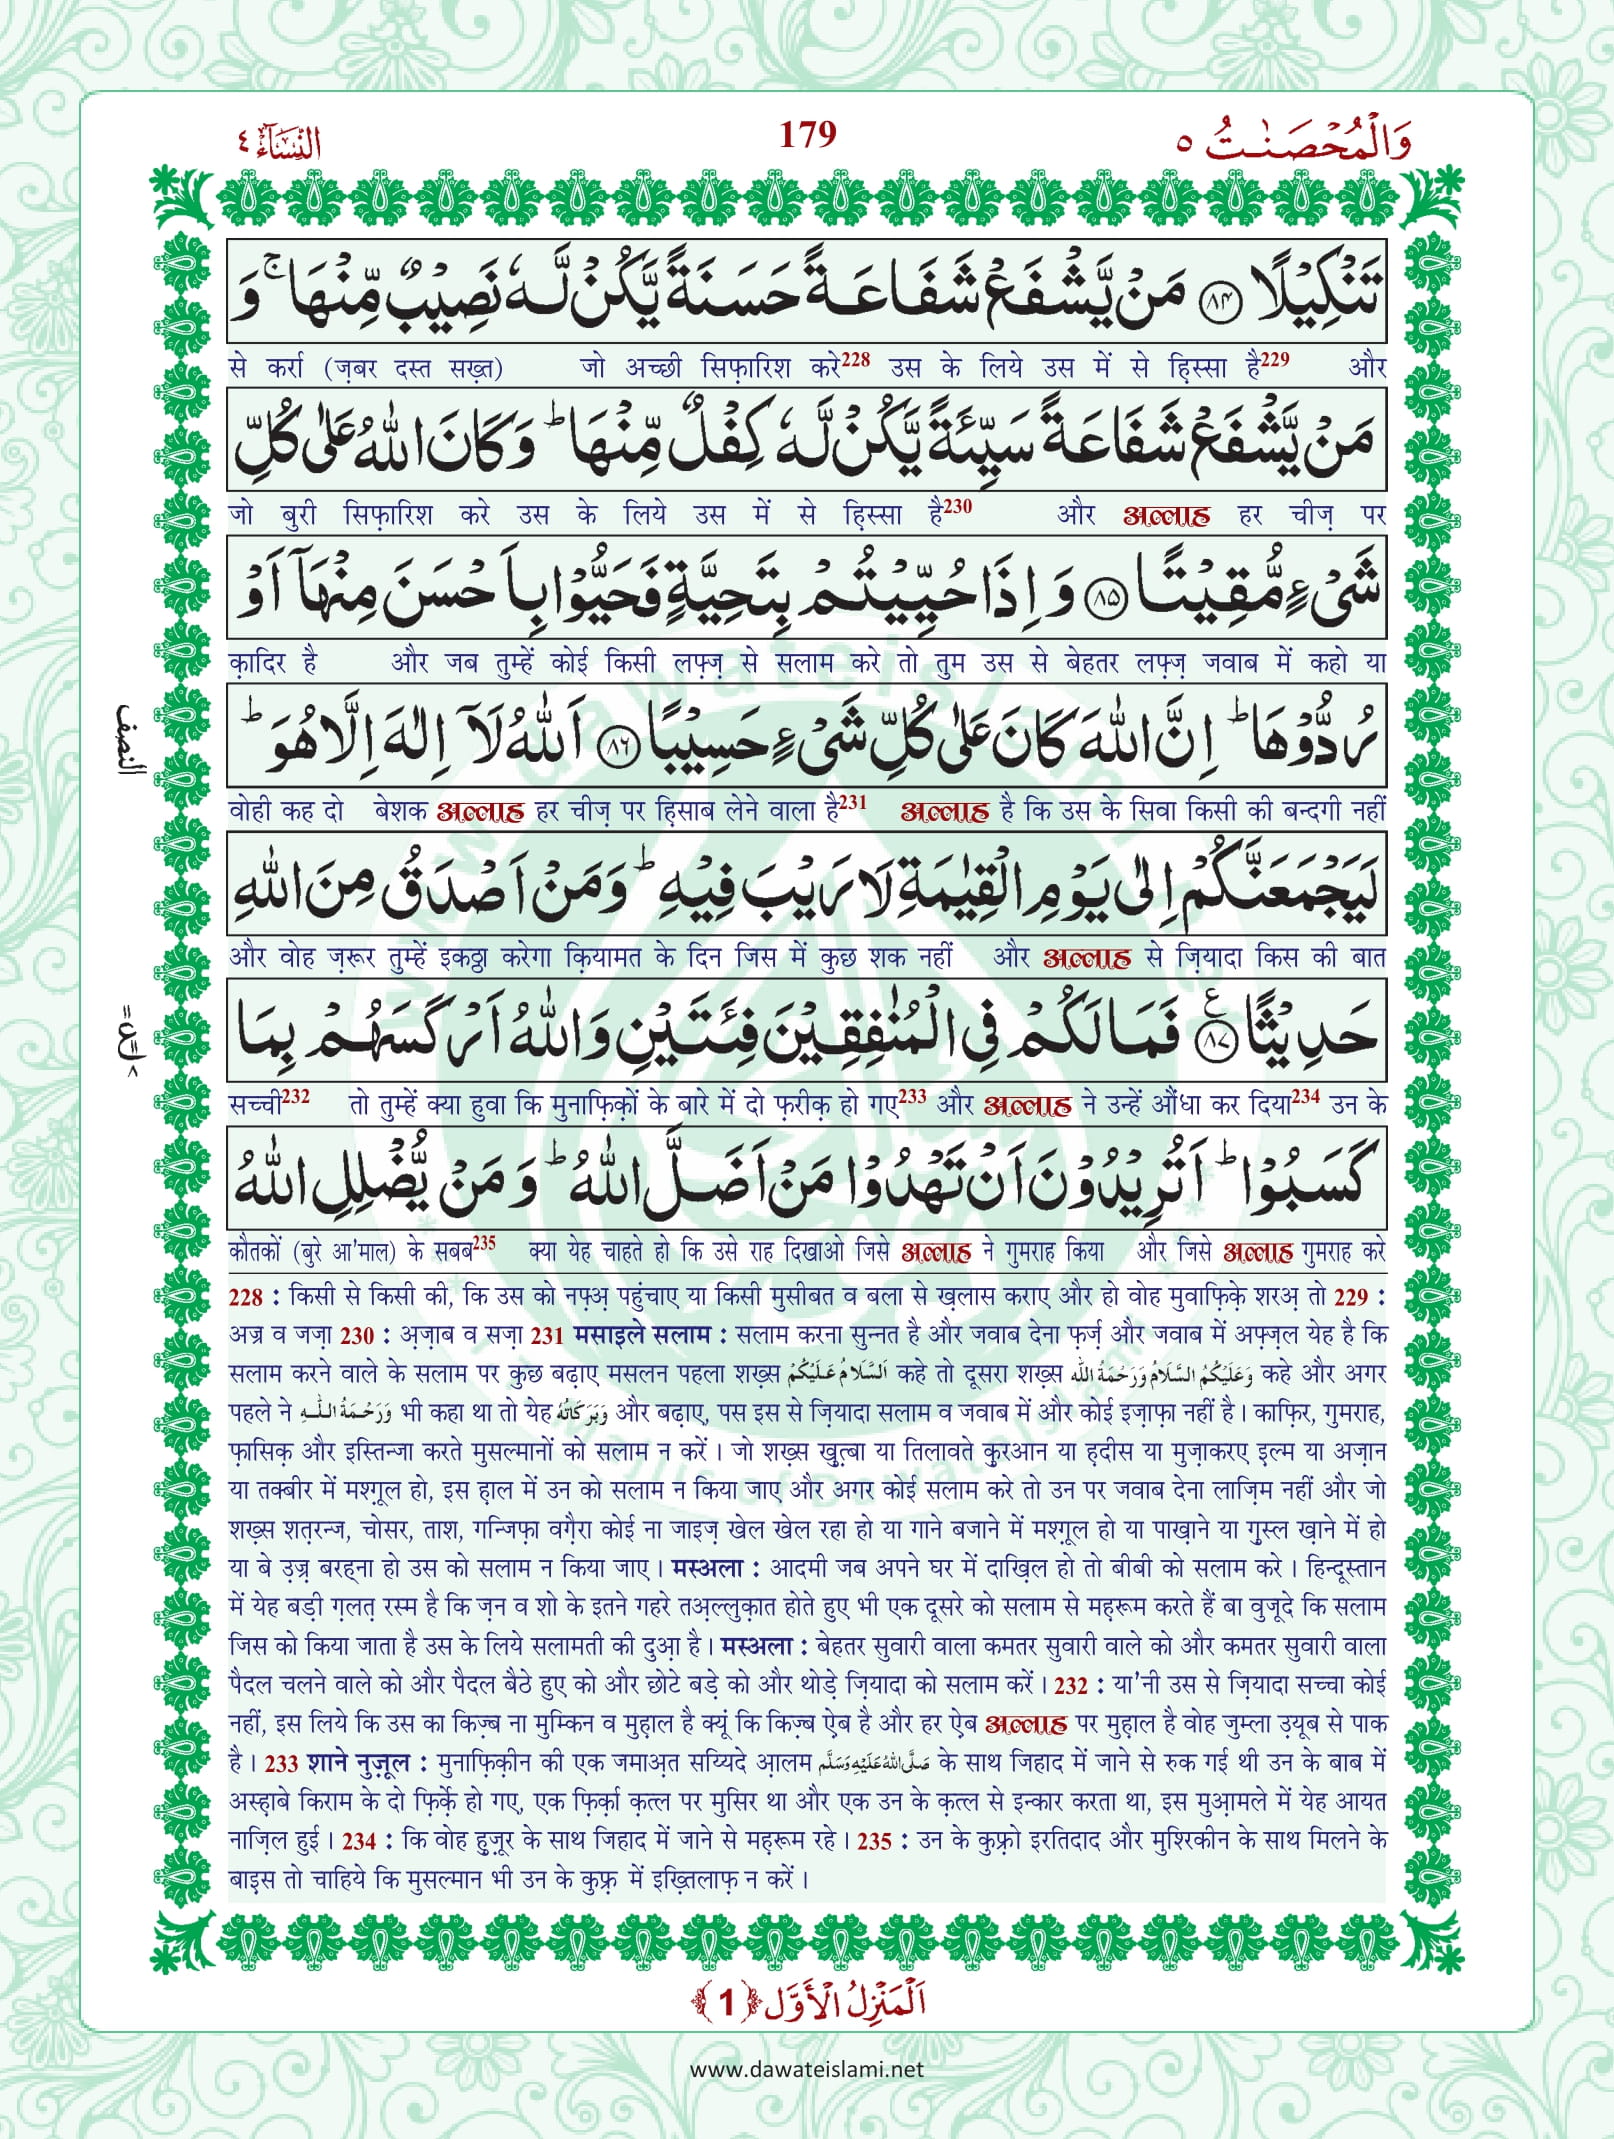 وَالْمُحْصَنٰتُ ٥
179
النِّسَآء ٤
تَنْكِيْلًا ﴿۸۴﴾ مَنْ يَّشْفَعْ شَفَاعَةً حَسَنَةً يَّكُنْ لَّهٗ نَصِيْبٌ مِّنْهَا ۚ وَ
से कर्रा (ज़बर दस्त सख़्त) जो अच्छी सिफ़ारिश करे228 उस के लिये उस में से हिस्सा है229 और
مَنْ يَّشْفَعْ شَفَاعَةً سَيِّئَةً يَّكُنْ لَّهٗ كِفْلٌ مِّنْهَا ؕ وَكَانَ اللّٰهُ عَلٰى كُلِّ
जो बुरी सिफ़ारिश करे उस के लिये उस में से हिस्सा है230 और अल्लाह हर चीज़ पर
شَيْءٍ مُّقِيْتًا ﴿۸۵﴾ وَ اِذَا حُيِّيْتُمْ بِتَحِيَّةٍ فَحَيُّوْا بِاَحْسَنَ مِنْهَاۤ اَوْ
क़ादिर है और जब तुम्हें कोई किसी लफ़्ज़ से सलाम करे तो तुम उस से बेहतर लफ़्ज़ जवाब में कहो या
رُدُّوْهَا ؕ اِنَّ اللّٰهَ كَانَ عَلٰى كُلِّ شَيْءٍ حَسِيْبًا ﴿۸۶﴾ اَللّٰهُ لَاۤ اِلٰهَ اِلَّا هُوَ ؕ
النصف
वोही कह दो बेशक अल्लाह हर चीज़ पर हिसाब लेने वाला है231 अल्लाह है कि उस के सिवा किसी की बन्दगी नहीं
لَيَجْمَعَنَّكُمْ اِلٰى يَوْمِ الْقِيٰمَةِ لَا رَيْبَ فِيْهِ ؕ وَمَنْ اَصْدَقُ مِنَ اللّٰهِ
और वोह ज़रूर तुम्हें इकठ्ठा करेगा क़ियामत के दिन जिस में कुछ शक नहीं और अल्लाह से ज़ियादा किस की बात
حَدِيْثًا ﴿۸۷﴾ ع فَمَا لَكُمْ فِي الْمُنٰفِقِيْنَ فِئَتَيْنِ وَاللّٰهُ اَرْكَسَهُمْ بِمَا
सच्ची232 तो तुम्हें क्या हुवा कि मुनाफ़िक़ों के बारे में दो फ़रीक़ हो गए233 और अल्लाह ने उन्हें औंधा कर दिया234 उन के
كَسَبُوْا ؕ اَتُرِيْدُوْنَ اَنْ تَهْدُوْا مَنْ اَضَلَّ اللّٰهُ ؕ وَمَنْ يُّضْلِلِ اللّٰهُ
कौतकों (बुरे आ'माल) के सबब235 क्या येह चाहते हो कि उसे राह दिखाओ जिसे अल्लाह ने गुमराह किया और जिसे अल्लाह गुमराह करे
228 : किसी से किसी की, कि उस को नफ़्अ़ पहुंचाए या किसी मुसीबत व बला से ख़लास कराए और हो वोह मुवाफ़िक़े शरअ़ तो 229 :
अज्र व जज़ा 230 : अ़ज़ाब व सज़ा 231 मसाइले सलाम : सलाम करना सुन्नत है और जवाब देना फ़र्ज़ और जवाब में अफ़्ज़ल येह है कि
सलाम करने वाले के सलाम पर कुछ बढ़ाए मसलन पहला शख़्स اَلسَّلَامُ عَلَيْكُمْ कहे तो दूसरा शख़्स وَعَلَيْكُمُ السَّلَامُ وَرَحْمَةُ اللّٰه कहे और अगर
पहले ने وَرَحْمَةُ اللّٰهِ भी कहा था तो येह وَبَرَكَاتُهُ और बढ़ाए, पस इस से ज़ियादा सलाम व जवाब में और कोई इज़ाफ़ा नहीं है। काफ़िर, गुमराह,
फ़ासिक़ और इस्तिन्जा करते मुसल्मानों को सलाम न करें। जो शख़्स ख़ुत्बा या तिलावते क़ुरआन या ह़दीस या मुज़ाकरए इल्म या अज़ान
या तक्बीर में मश्ग़ूल हो, इस ह़ाल में उन को सलाम न किया जाए और अगर कोई सलाम करे तो उन पर जवाब देना लाज़िम नहीं और जो
शख़्स शत़रन्ज, चोसर, ताश, गन्जिफ़ा वग़ैरा कोई ना जाइज़ खेल खेल रहा हो या गाने बजाने में मश्ग़ूल हो या पाख़ाने या ग़ुस्ल ख़ाने में हो
या बे उ़ज़्र बरह्ना हो उस को सलाम न किया जाए। मस्अला : आदमी जब अपने घर में दाख़िल हो तो बीबी को सलाम करे। हिन्दूस्तान
में येह बड़ी ग़लत़ रस्म है कि ज़न व शो के इतने गहरे तअ़ल्लुक़ात होते हुए भी एक दूसरे को सलाम से मह़रूम करते हैं बा वुजूदे कि सलाम
जिस को किया जाता है उस के लिये सलामती की दुआ़ है। मस्अला : बेहतर सुवारी वाला कमतर सुवारी वाले को और कमतर सुवारी वाला
पैदल चलने वाले को और पैदल बैठे हुए को और छोटे बड़े को और थोड़े ज़ियादा को सलाम करें। 232 : या'नी उस से ज़ियादा सच्चा कोई
नहीं, इस लिये कि उस का किज़्ब ना मुम्किन व मुह़ाल है क्यूं कि किज़्ब ऐब है और हर ऐब अल्लाह पर मुह़ाल है वोह जुम्ला उ़यूब से पाक
है। 233 शाने नुज़ूल : मुनाफ़िक़ीन की एक जमाअ़त सय्यिदे आ़लम صَلَّى اللّٰهُ عَلَيْهِ وَسَلَّم के साथ जिहाद में जाने से रुक गई थी उन के बाब में
अस्ह़ाबे किराम के दो फ़िर्क़े हो गए, एक फ़िर्क़ा क़त्ल पर मुसिर था और एक उन के क़त्ल से इन्कार करता था, इस मुआ़मले में येह आयत
नाज़िल हुई। 234 : कि वोह हुज़ूर के साथ जिहाद में जाने से मह़रूम रहे। 235 : उन के कुफ़्रो इरतिदाद और मुश्रिकीन के साथ मिलने के
बाइ़स तो चाहिये कि मुसल्मान भी उन के कुफ़्र में इख़्तिलाफ़ न करें।
اَلْمَنْزِلُ الْاَوَّل ﴿1﴾
www.dawateislami.net